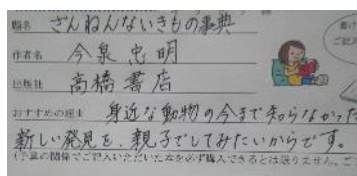 題名 ざんねんないきもの事典
作者名 今泉忠明
出版社 高橋書店
おすすめの理由 身近な動物の今まで知らなかった
新しい発見を、親子でしてみたいからです。
(予算の関係でご記入いただいた本を必ず購入できるとは限りません。ご